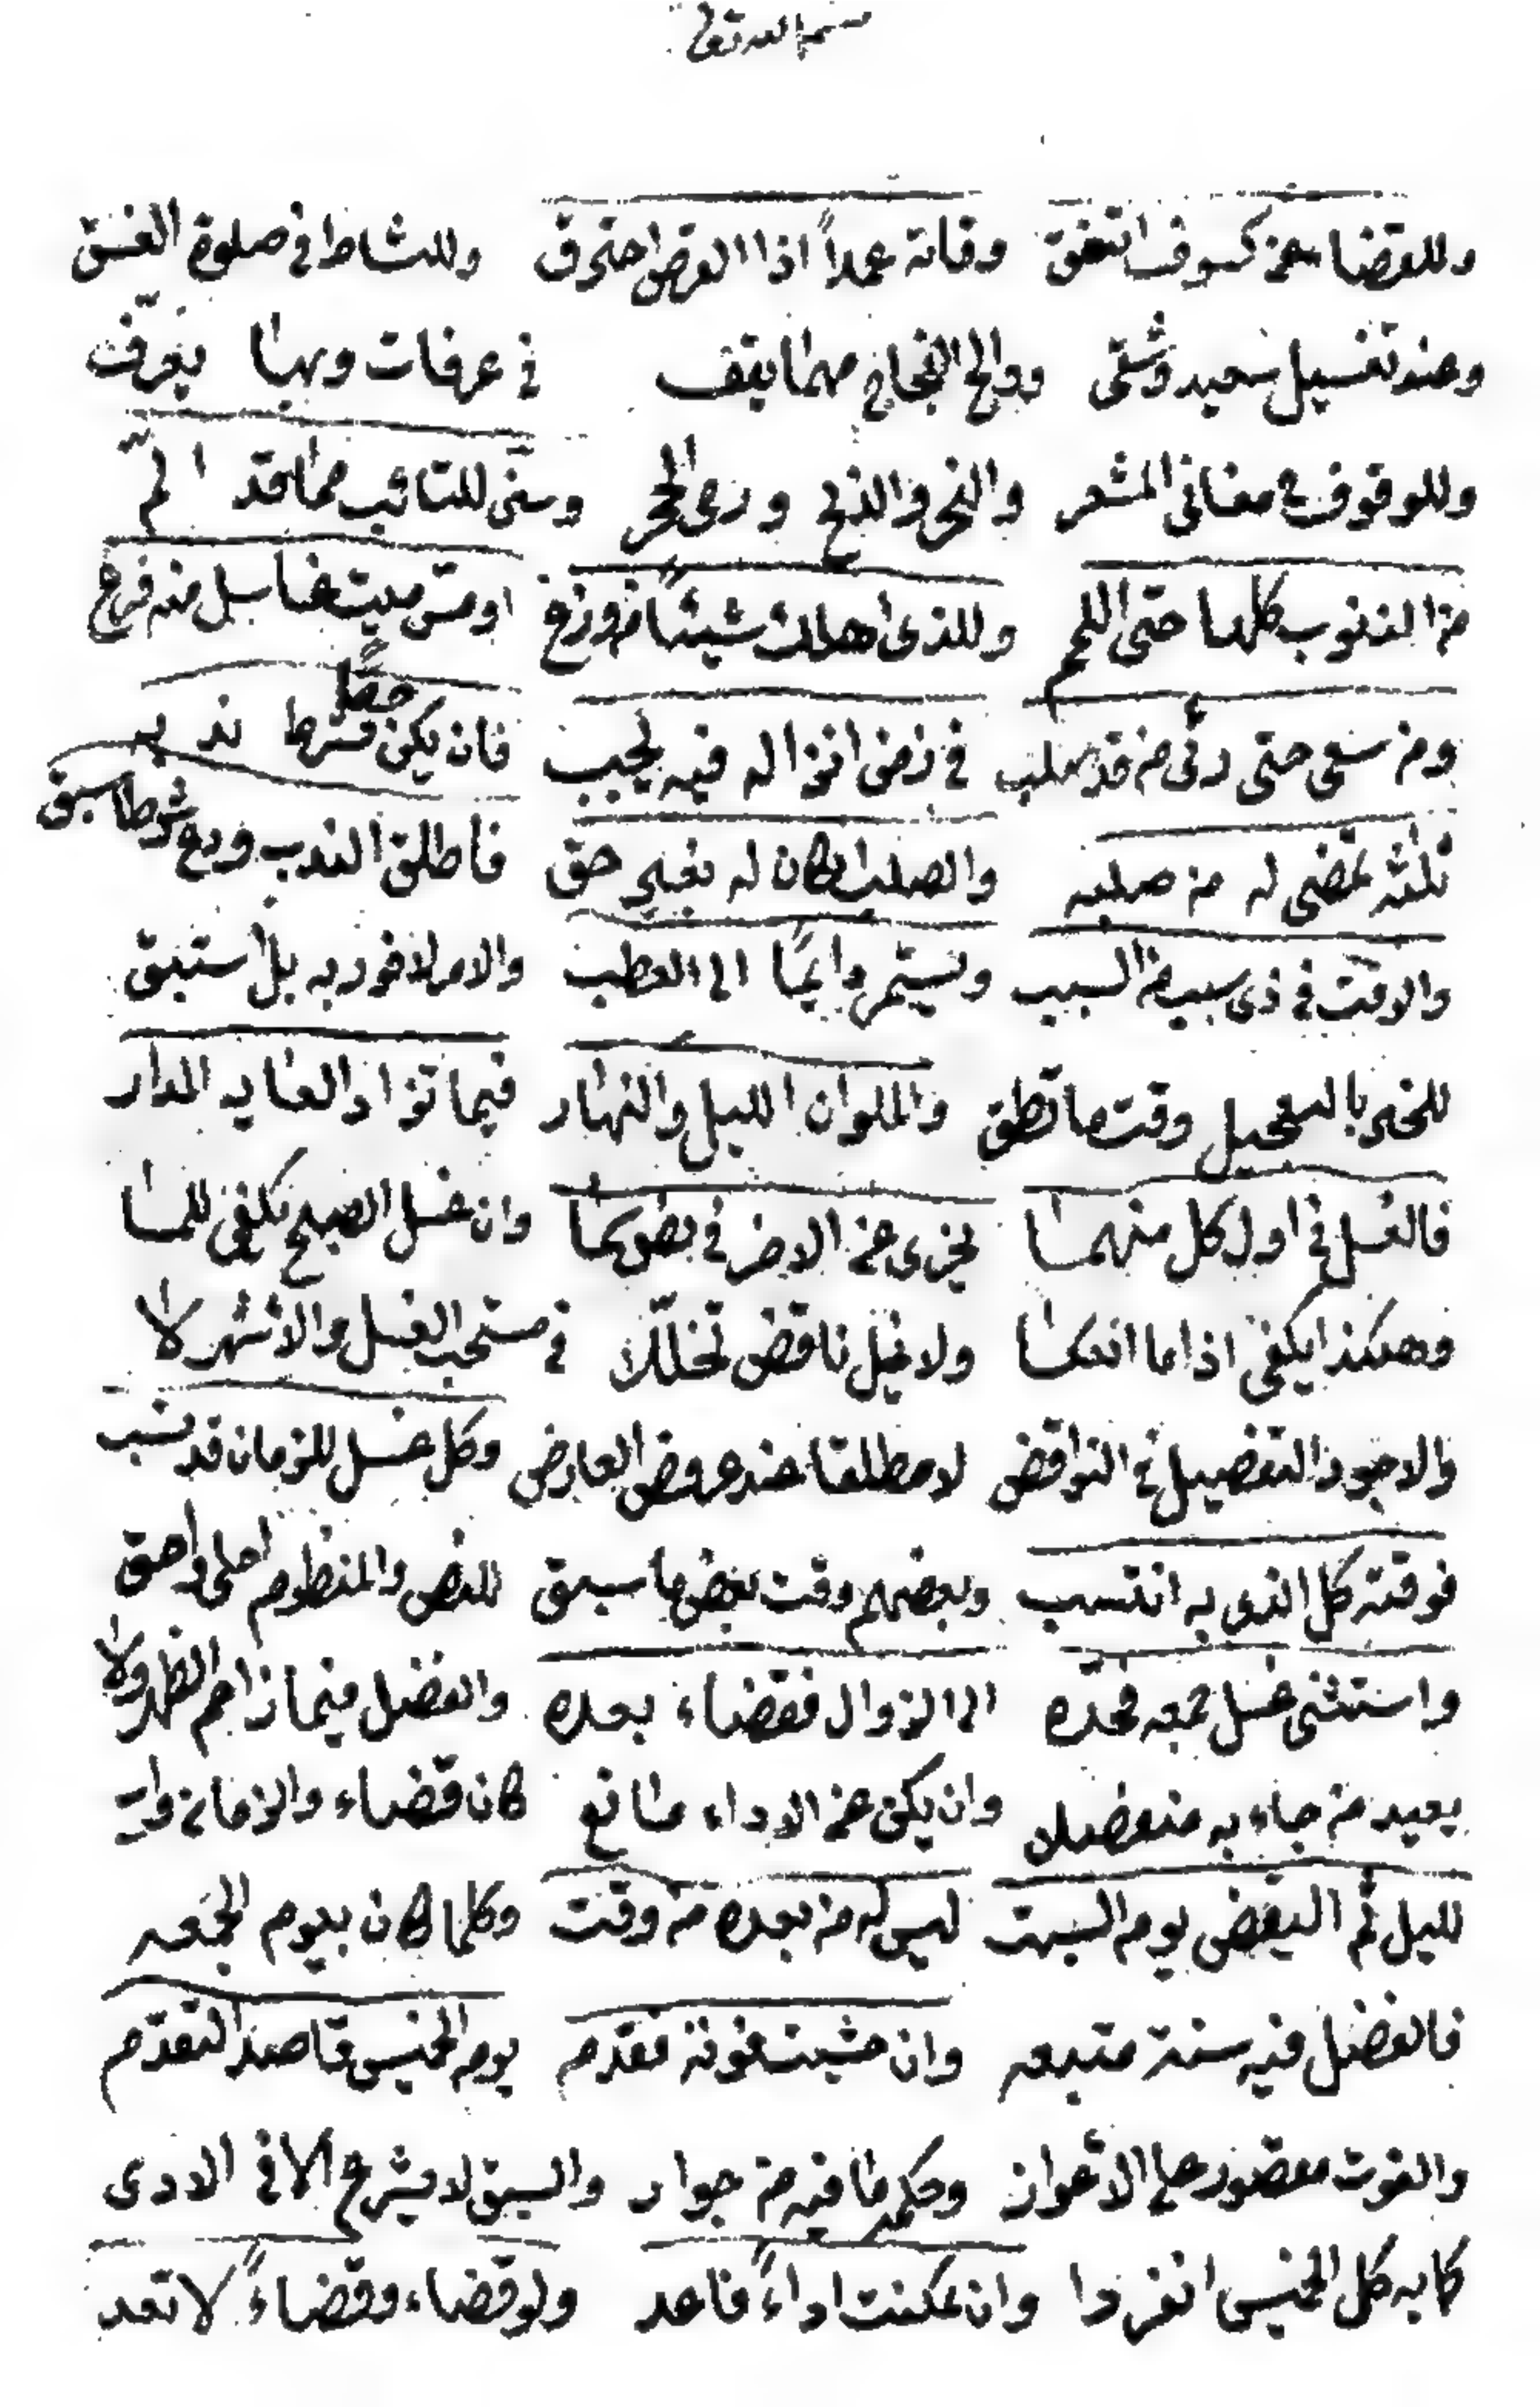 بسم الله تعالى
وللقضاء عن كسوف اتفق وفاته عمداً اذا القرص احترق وللنشاط في صلوة الغسق
وعند تغسيل سعيد وشقى والحجاج مهما يقف في عرفات وبها يعرف
وللوقوف في مغاني المشعر والنحر والذبح ورمى الجمر وسنّ للتائب مما قد المّ
من الذنوب كلها حتى اللمم وللذى اهلك شيئاً من وزغ او مسّ ميت غاسل منه فرغ
ومن سعى حتى رئى من قد صلب في زمن انزاله فيه يجب فان يكن قبل ندبه
ثلثة تمضى له من صلبه والصلب ان كان له بغير حق فاطلق الندب ودع شرطا سبق
والوقت في ذى سبب من السبب ويستمر دايمًا الى العطب والامر لا فور به بل استبق
للخير بالتعجيل وقت ما تطق والملوان الليل والنهار فيما تزاد الغايه المدار
فالغسل في اول كل منهما يجزى عن الاخر في بعضهما وان غسل الصبح يكفى للمسا
وهكذا يكفى اذا ما انعكسا ولا يخل ناقض تخلّلا في مستحب الغسل والاشهر لا
والاجود التفصيل في النواقض لا مطلقا عند عروض العارض وكل غسل للزمان قد نسب
فوقته كل الذى به انتسب وبعضهم وقت بعض ما سبق للنص والمنظوم احلى واحق
واستثنى غسل جمعه فحدّه الى الزوال فقضاء بعده والفضل فيما زاحم الظهر ولا
يعيد من جاء به منفصلا وان يكن عن الاداء مانع كان قضاء والزمان واسع
لليل ثم اليقض يوم السبت ليس له من بعده من وقت وكلما كان بيوم الجمعه
فالفضل فيه سنة متبعه وان خشيت فوته فقدم يوم الخميس قاصد التقدّم
والفوت مقصور على الاعواز وحكمه ما فيه من جواز والسبق لا يشرع الا في الادى
كايه كل الخميس انفردا وان تمكنت اداءً فاعد ولو قضاء وقضاءً لا تعد